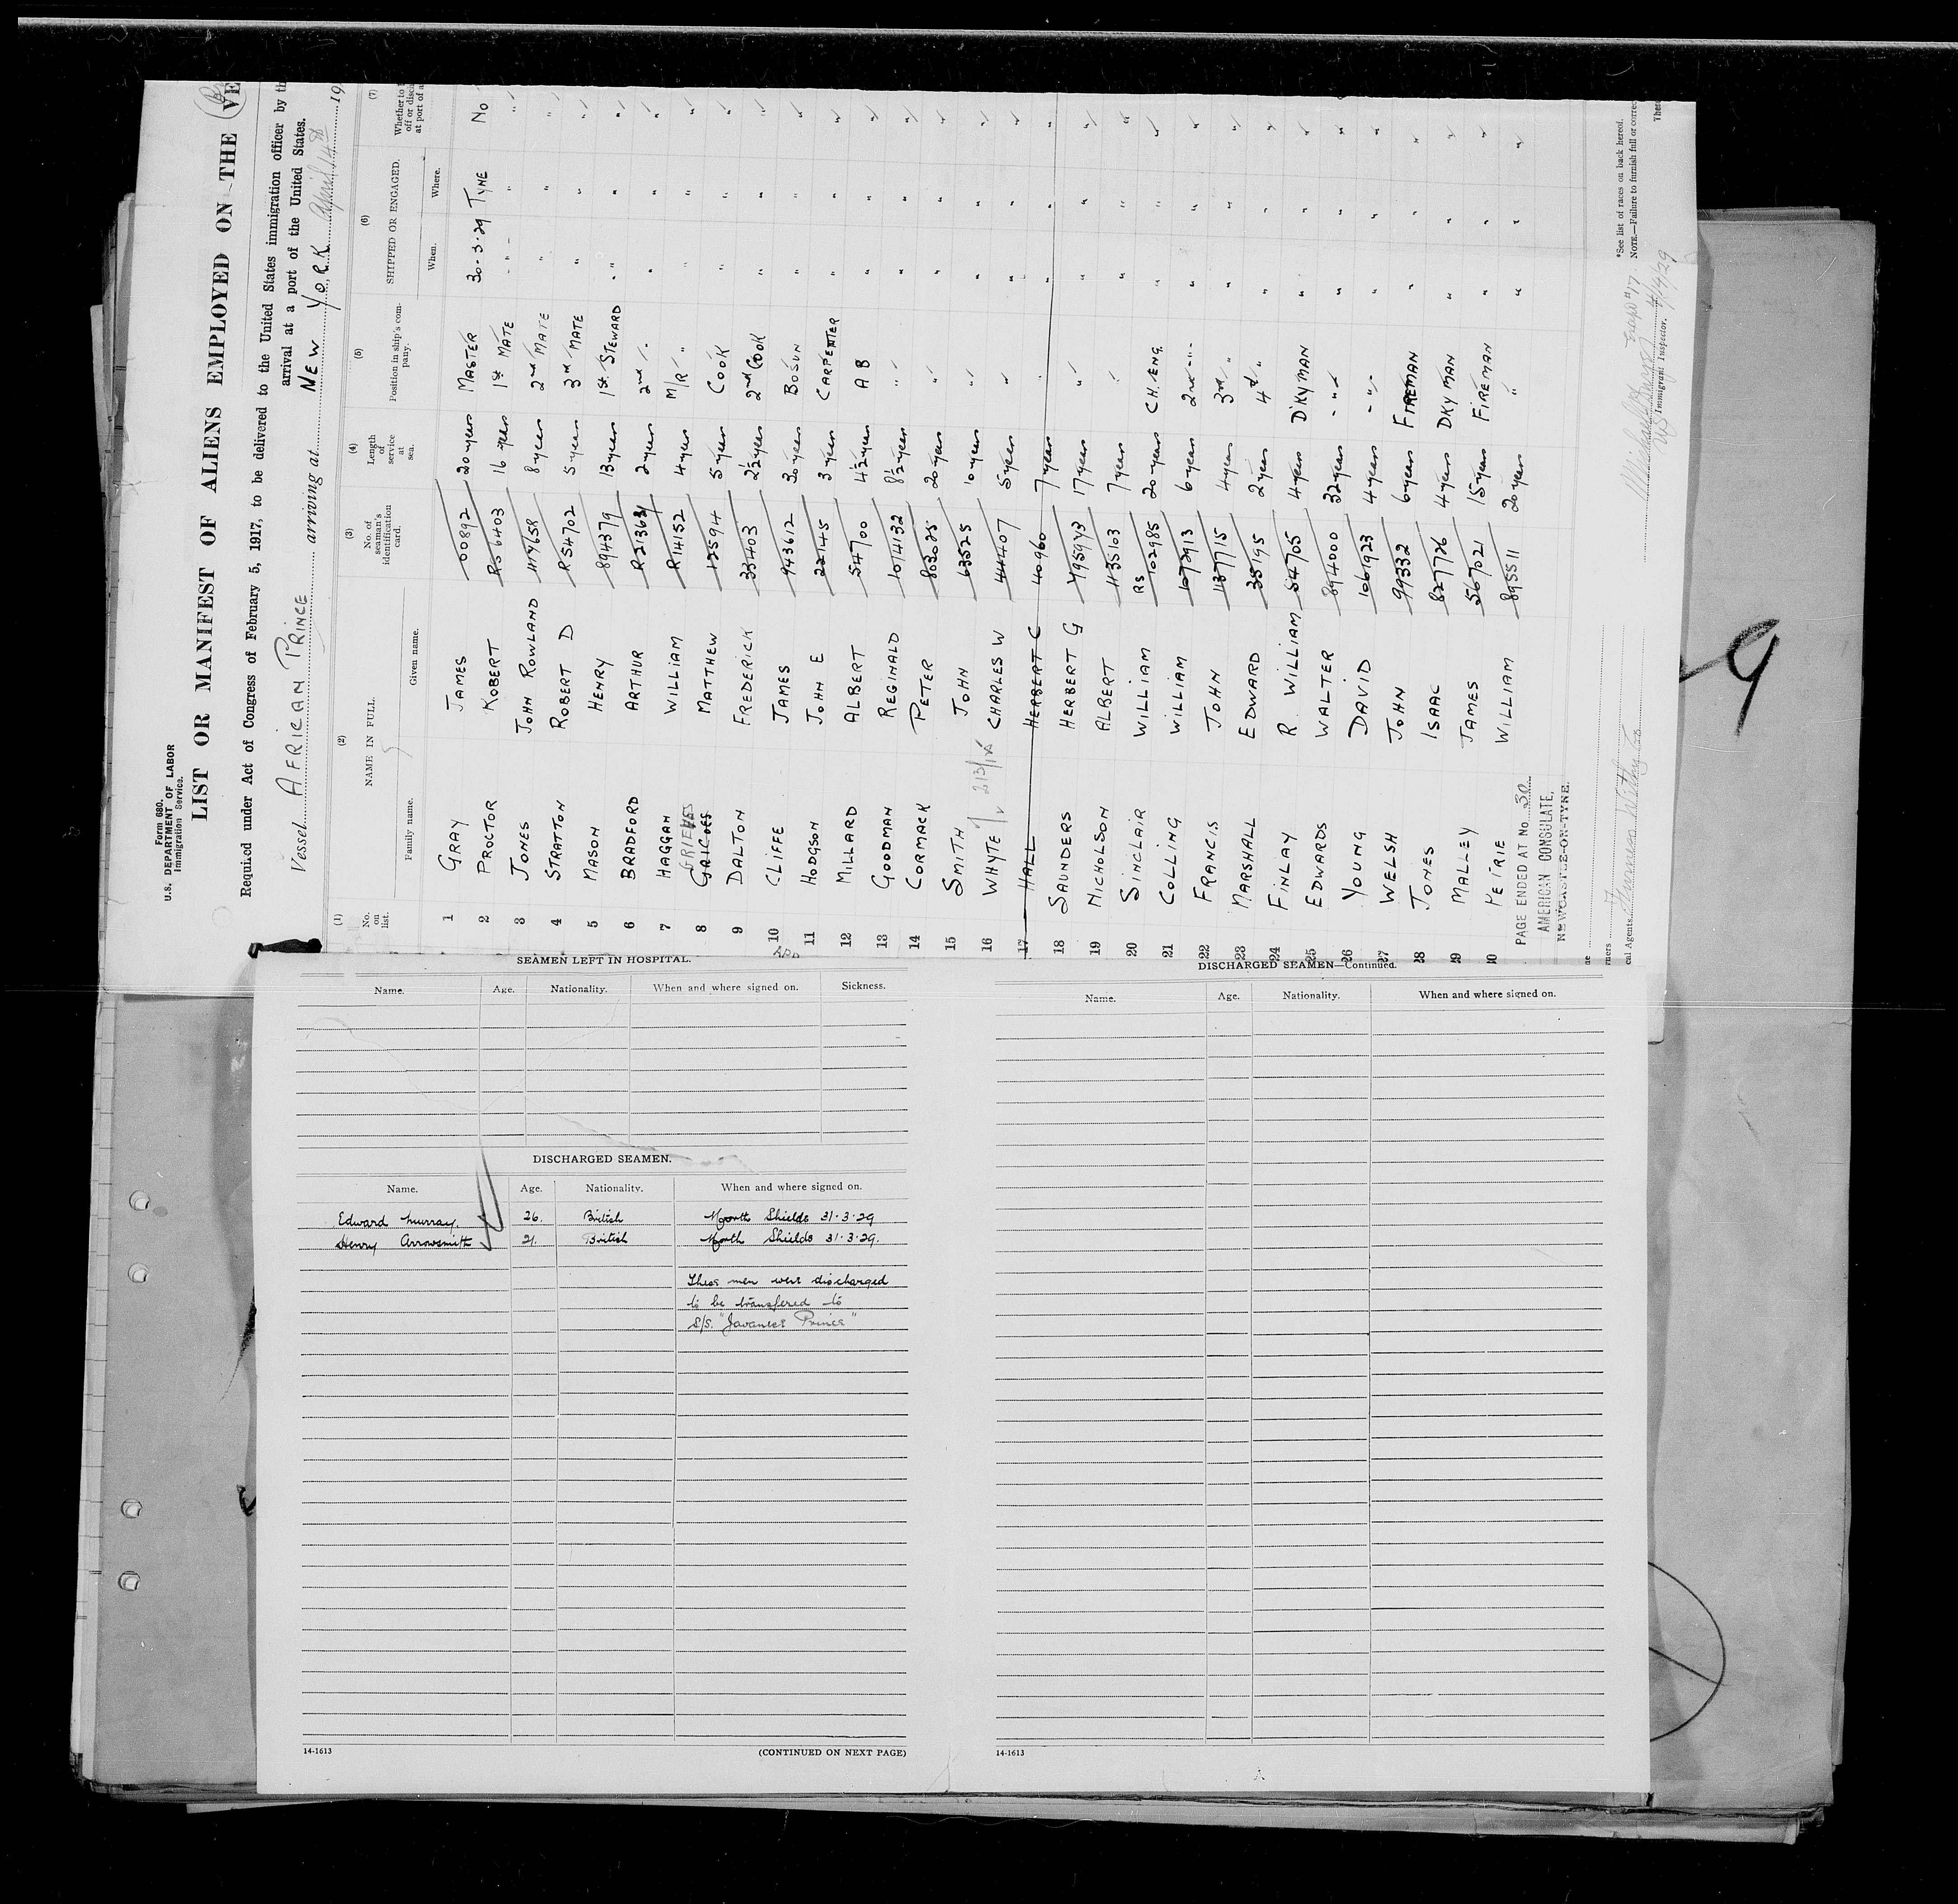 Form 680.
U.S. DEPARTMENT OF LABOR
Immigration Service.
LIST OR MANIFEST OF ALIENS EMPLOYED ON THE VE
Required under Act of Congress of February 5, 1917, to be delivered to the United States immigration officer by th
arrival at a port of the United States.
Vessel AFRICAN PRINCE arriving at NEW YORK April 14th 19
(1) (2) (3) (4) (5) (6) (7)
No. on list. NAME IN FULL. No. of seaman's identification card. Length of service at sea. Position in ship's company. SHIPPED OR ENGAGED. Whether to off or disc at port of a
Family name. Given name. When. Where.
1 GRAY JAMES 00892 20 years MASTER 30-3-29 TYNE No
2 PROCTOR ROBERT R56403 16 years 1st MATE " " "
3 JONES JOHN ROWLAND 417658 8 years 2nd MATE " " "
4 STRATTON ROBERT D R54702 5 years 3rd MATE " " "
5 MASON HENRY 894379 13 years 1st STEWARD " " "
6 BRADFORD ARTHUR R21363 2 years 2nd " " " "
7 HAGGAN WILLIAM R14152 4 years M/R " " " "
8 GRIEVES MATTHEW 12594 5 years COOK " " "
9 DALTON FREDERICK 33403 2½ years 2nd COOK " " "
10 CLIFFE JAMES 943612 30 years BOSUN " " "
11 HODGSON JOHN E 22145 3 years CARPENTER " " "
12 MILLARD ALBERT 54700 4½ years A B " " "
13 GOODMAN REGINALD 1014132 8½ years " " " "
14 CORMACK PETER 803025 20 years " " " "
15 SMITH JOHN 63525 10 years " " " "
16 WHYTE CHARLES W 44407 5 years " " " "
17 HALL HERBERT C 40960 7 years " " " "
18 SAUNDERS HERBERT G 495943 17 years " " " "
19 NICHOLSON ALBERT 435103 7 years " " " "
20 SINCLAIR WILLIAM RS 102985 20 years CH. ENG. " " "
21 COLLING WILLIAM 1072913 6 years 2nd " " " "
22 FRANCIS JOHN 137715 4 years 3rd " " " "
23 MARSHALL EDWARD 35195 2 years 4th " " " "
24 FINLAY R. WILLIAM 54705 4 years D'KYMAN " " "
25 EDWARDS WALTER 894000 32 years " " " "
26 YOUNG DAVID 1061923 4 years " " " "
27 WELSH JOHN 99332 6 years FIREMAN " " "
28 JONES ISAAC 827726 4 years DKYMAN " " "
29 MALLEY JAMES 567021 15 years FIREMAN " " "
30 PEIRIE WILLIAM 895511 20 years " " " "
PAGE ENDED AT No. 30
AMERICAN CONSULATE,
NEWCASTLE-ON-TYNE.
Immigrant Inspector. 4/14/29
*See list of races on back hereof.
NOTE.—Failure to furnish full or correc
Ther
ners
cal Agents. Furness Withy Co
9
SEAMEN LEFT IN HOSPITAL.
Name. Age. Nationality. When and where signed on. Sickness.
DISCHARGED SEAMEN.
Name. Age. Nationality. When and where signed on.
Edward Murray. 26. British North Shields 31.3.29
Henry Arrowsmith 21. British North Shields 31.3.29.
These men were discharged
to be transfered to
S/S. "Javanese Prince"
14-1613 (CONTINUED ON NEXT PAGE)
DISCHARGED SEAMEN—Continued.
Name. Age. Nationality. When and where signed on.
14-1613